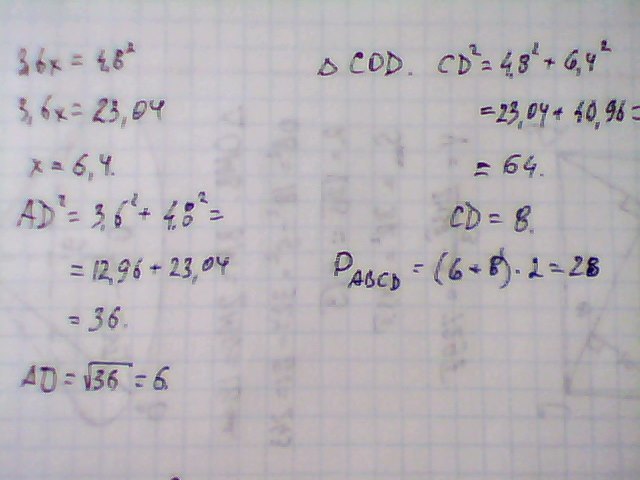 3,6x = 4,8²
3,6x = 23,04
x = 6,4.
AD² = 3,6² + 4,8² =
= 12,96 + 23,04
= 36.
AD = √36 = 6.
Δ COD. CD² = 4,8² + 6,4²
= 23,04 + 40,96 =
= 64.
CD = 8.
P_ABCD = (6 + 8) · 2 = 28